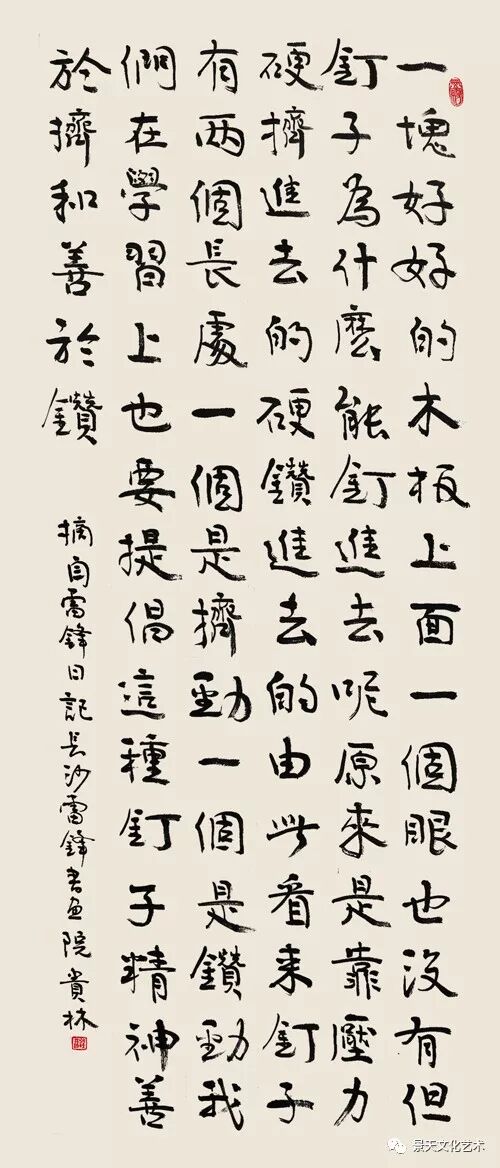 一塊好好的木板上面一個眼也沒有但
釘子為什麼能釘進去呢原來是靠壓力
硬擠進去的硬鑽進去的由此看来釘子
有两個長處一個是擠勁一個是鑽勁我
們在學習上也要提倡這種釘子精神善
於擠和善於鑽
摘自雷鋒日記長沙雷鋒書画院貴林
景天文化艺术